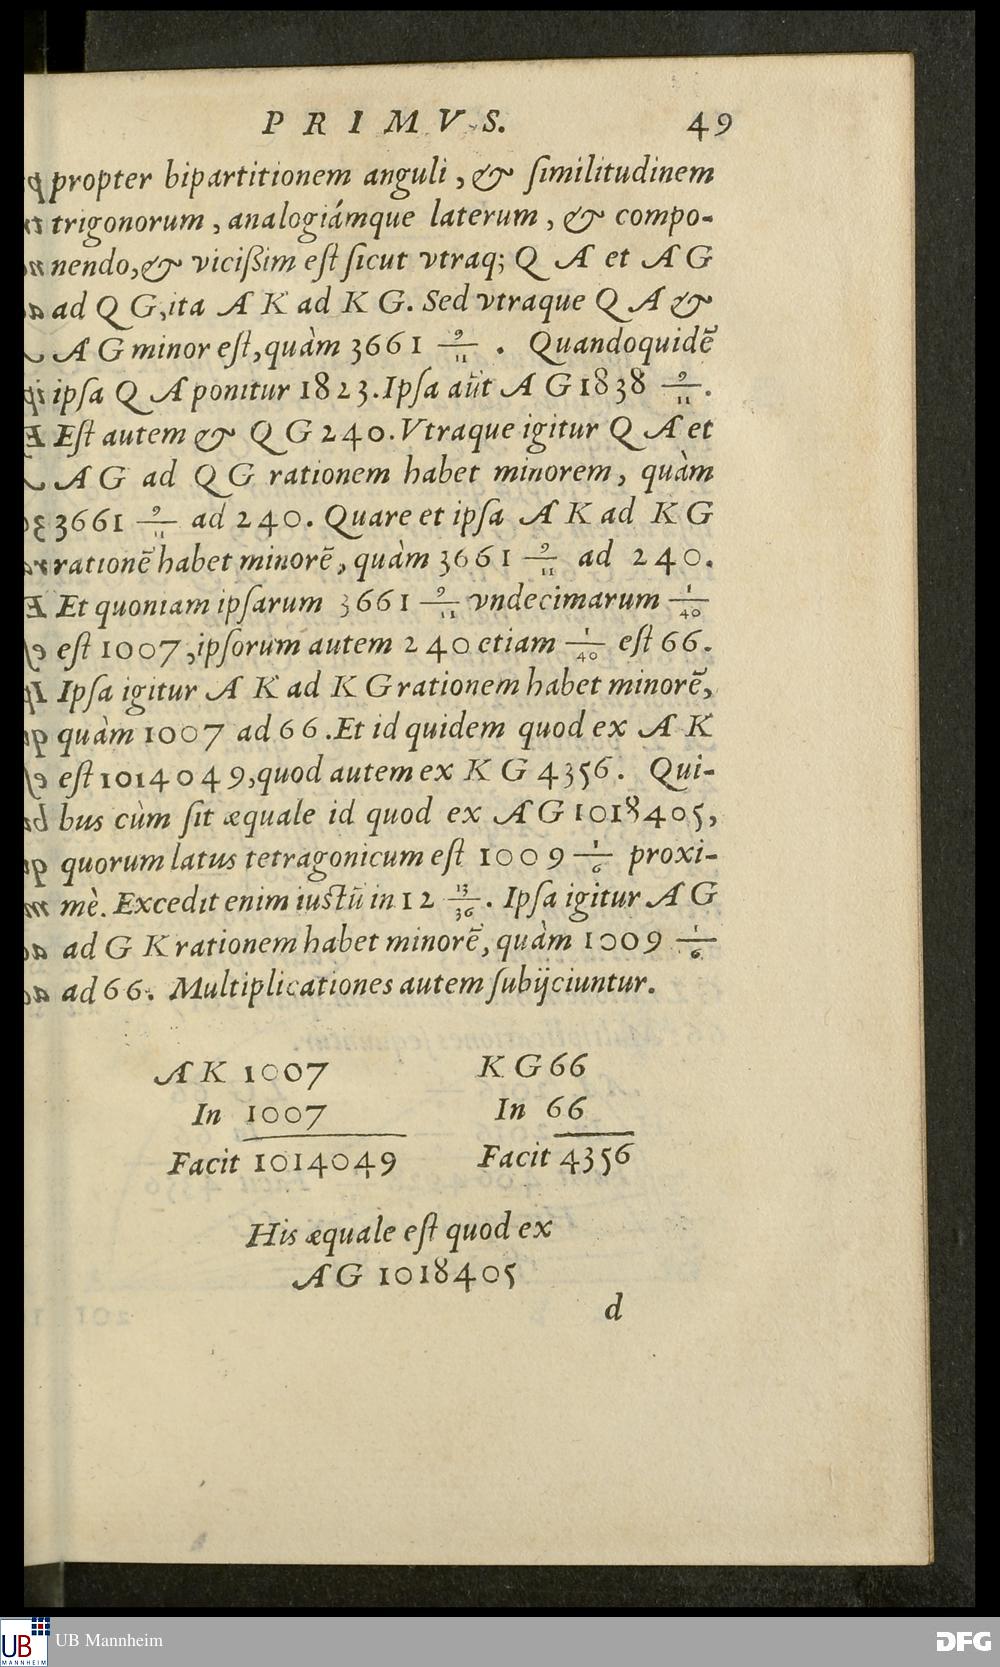 PRIMVS. 49
propter bipartitionem anguli, & ſimilitudinem
trigonorum, analogiámque laterum, & compo-
nendo, & viciſsim eſt ſicut vtraq; Q A et A G
ad Q G, ita A K ad K G. Sed vtraque Q A &
A G minor eſt, quàm 3661 9/11. Quandoquidē
ipſa Q A ponitur 1823. Ipſa aūt A G 1838 9/11.
Eſt autem & Q G 240. Vtraque igitur Q A et
A G ad Q G rationem habet minorem, quàm
3661 9/11 ad 240. Quare et ipſa A K ad K G
rationē habet minorē, quàm 3661 9/11 ad 240.
Et quoniam ipſarum 3661 9/11 vndecimarum 1/40
eſt 1007, ipſorum autem 240 etiam 1/40 eſt 66.
Ipſa igitur A K ad K G rationem habet minorē,
quàm 1007 ad 66. Et id quidem quod ex A K
eſt 1014049, quod autem ex K G 4356. Qui-
bus cùm ſit æquale id quod ex A G 1018405,
quorum latus tetragonicum eſt 1009 1/6 proxi-
mè. Excedit enim iuſtū in 12 13/36. Ipſa igitur A G
ad G K rationem habet minorē, quàm 1009 1/6
ad 66. Multiplicationes autem ſubijciuntur.
A K 1007 K G 66
In 1007 In 66
Facit 1014049 Facit 4356
His æquale eſt quod ex
A G 1018405
d
UB MANNHEIM UB Mannheim DFG